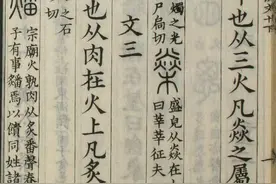 也从三火凡焱之屬
燭之光
户扃切
燊
盛皃从焱在
曰莘莘征夫
文三
也从肉在火上凡炙
之石
切
宗廟火孰肉从炙番聲春
于有事燔焉以饋同姓諸